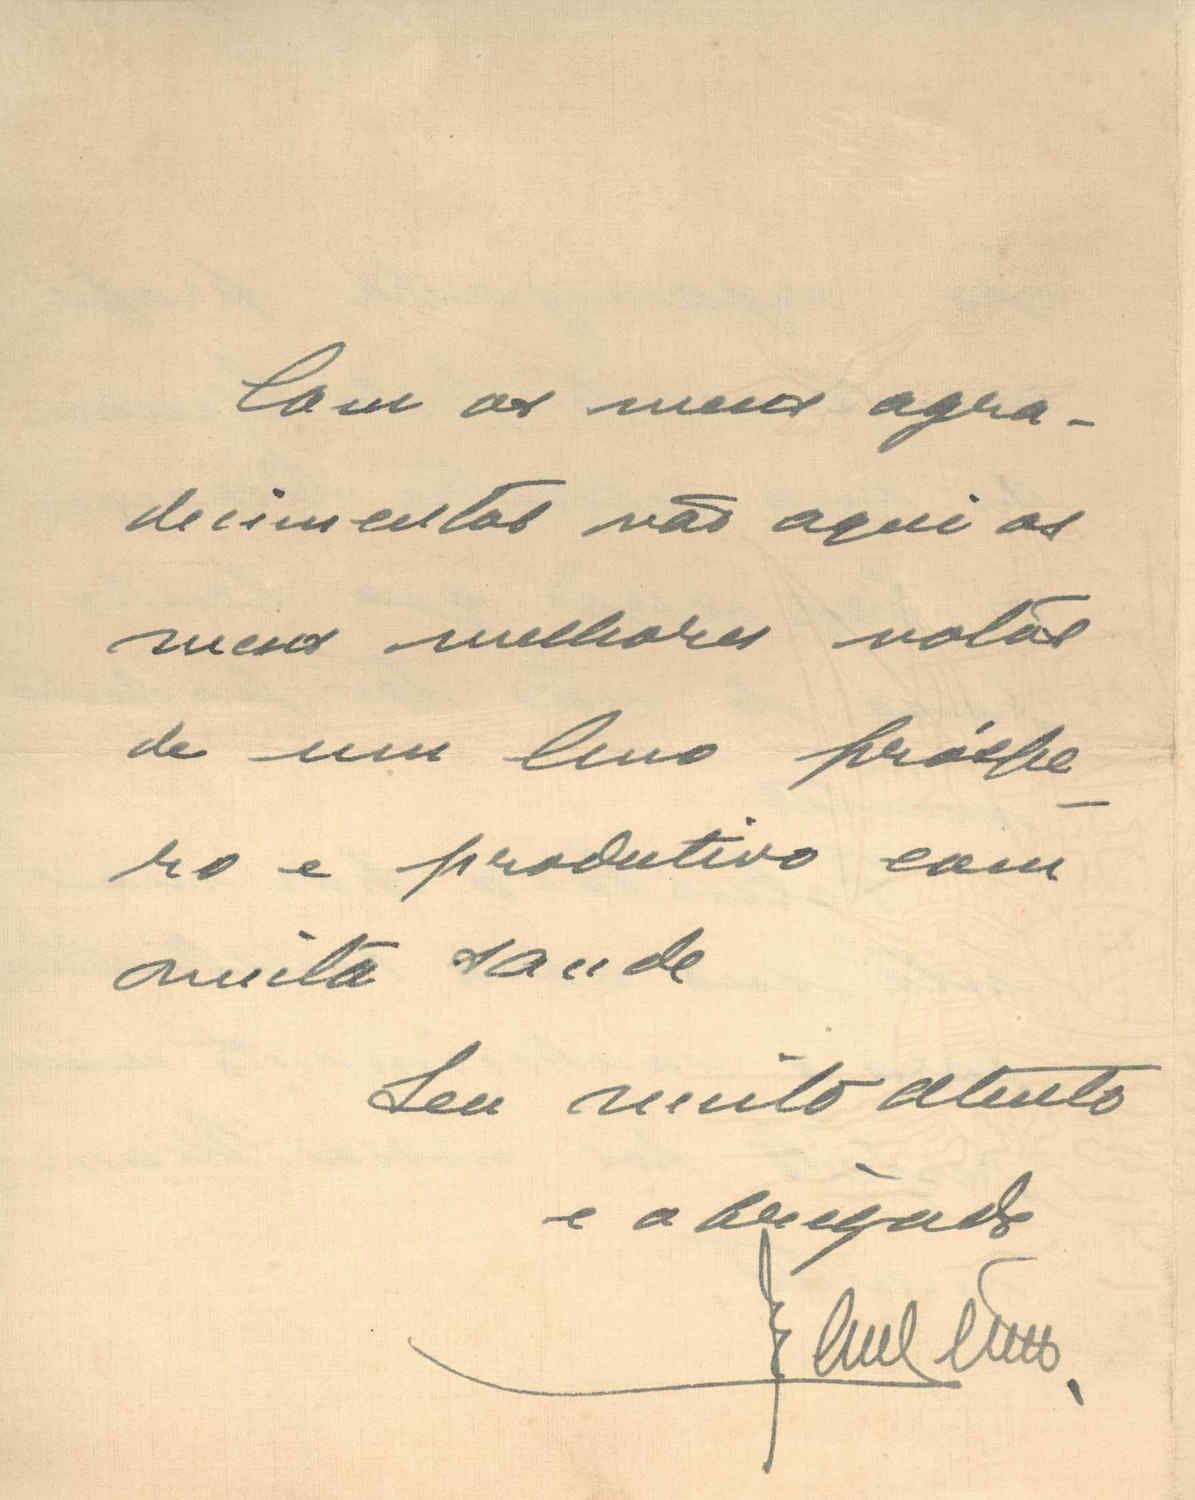 Com os meus agra-
decimentos vão aqui os
meus melhores votos
de um Ano próspe-
ro e produtivo com
muita saude
Seu muito atento
e obrigado